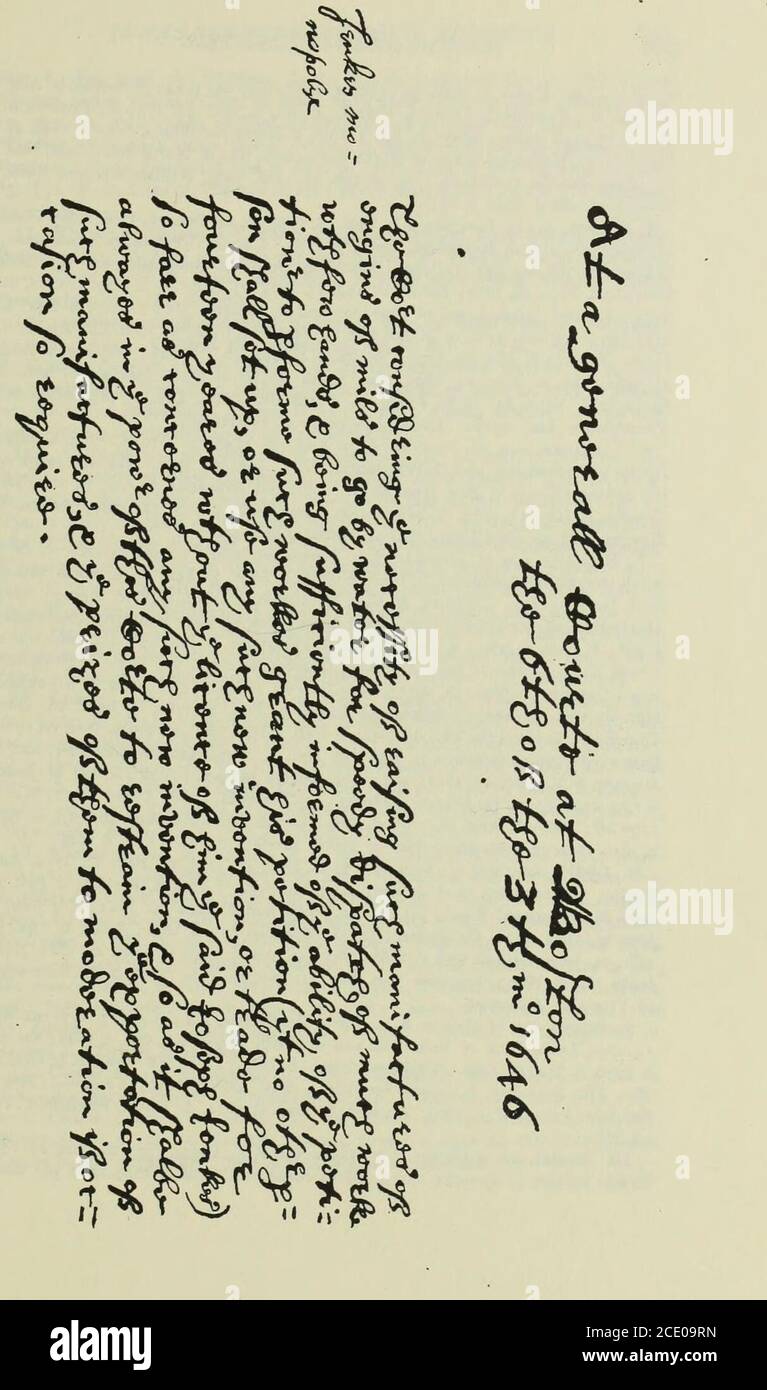 At a generall Courte at Boston
the 6th of the 3th mº 1646
Jenkes mo=
nopolye
The Cort considering yᵉ necessity of raising such manifactures of
engins of mils to go by water for speedy dispatch of much worke
wth few hands, & being sufficiently informed of yᵉ ability of yᵉ peti=
tionr to pforme such workes grant his petition (yt no othr p=
son shall set up, or use any such new invention, or trade for
fourteen yeares wthout yᵉ licence of him yᵉ said Joseph Jenkes)
so farr as concernes any such new invention, & so as it shalbe
alwayes in yᵉ powr of this Corte to restrain yᵉ exportation of
such manifactures, & yᵉ prizes of them to moderation if oc=
casion so require.
alamy
alamy
alamy
alamy
Image ID: 2CE09RN
www.alamy.com